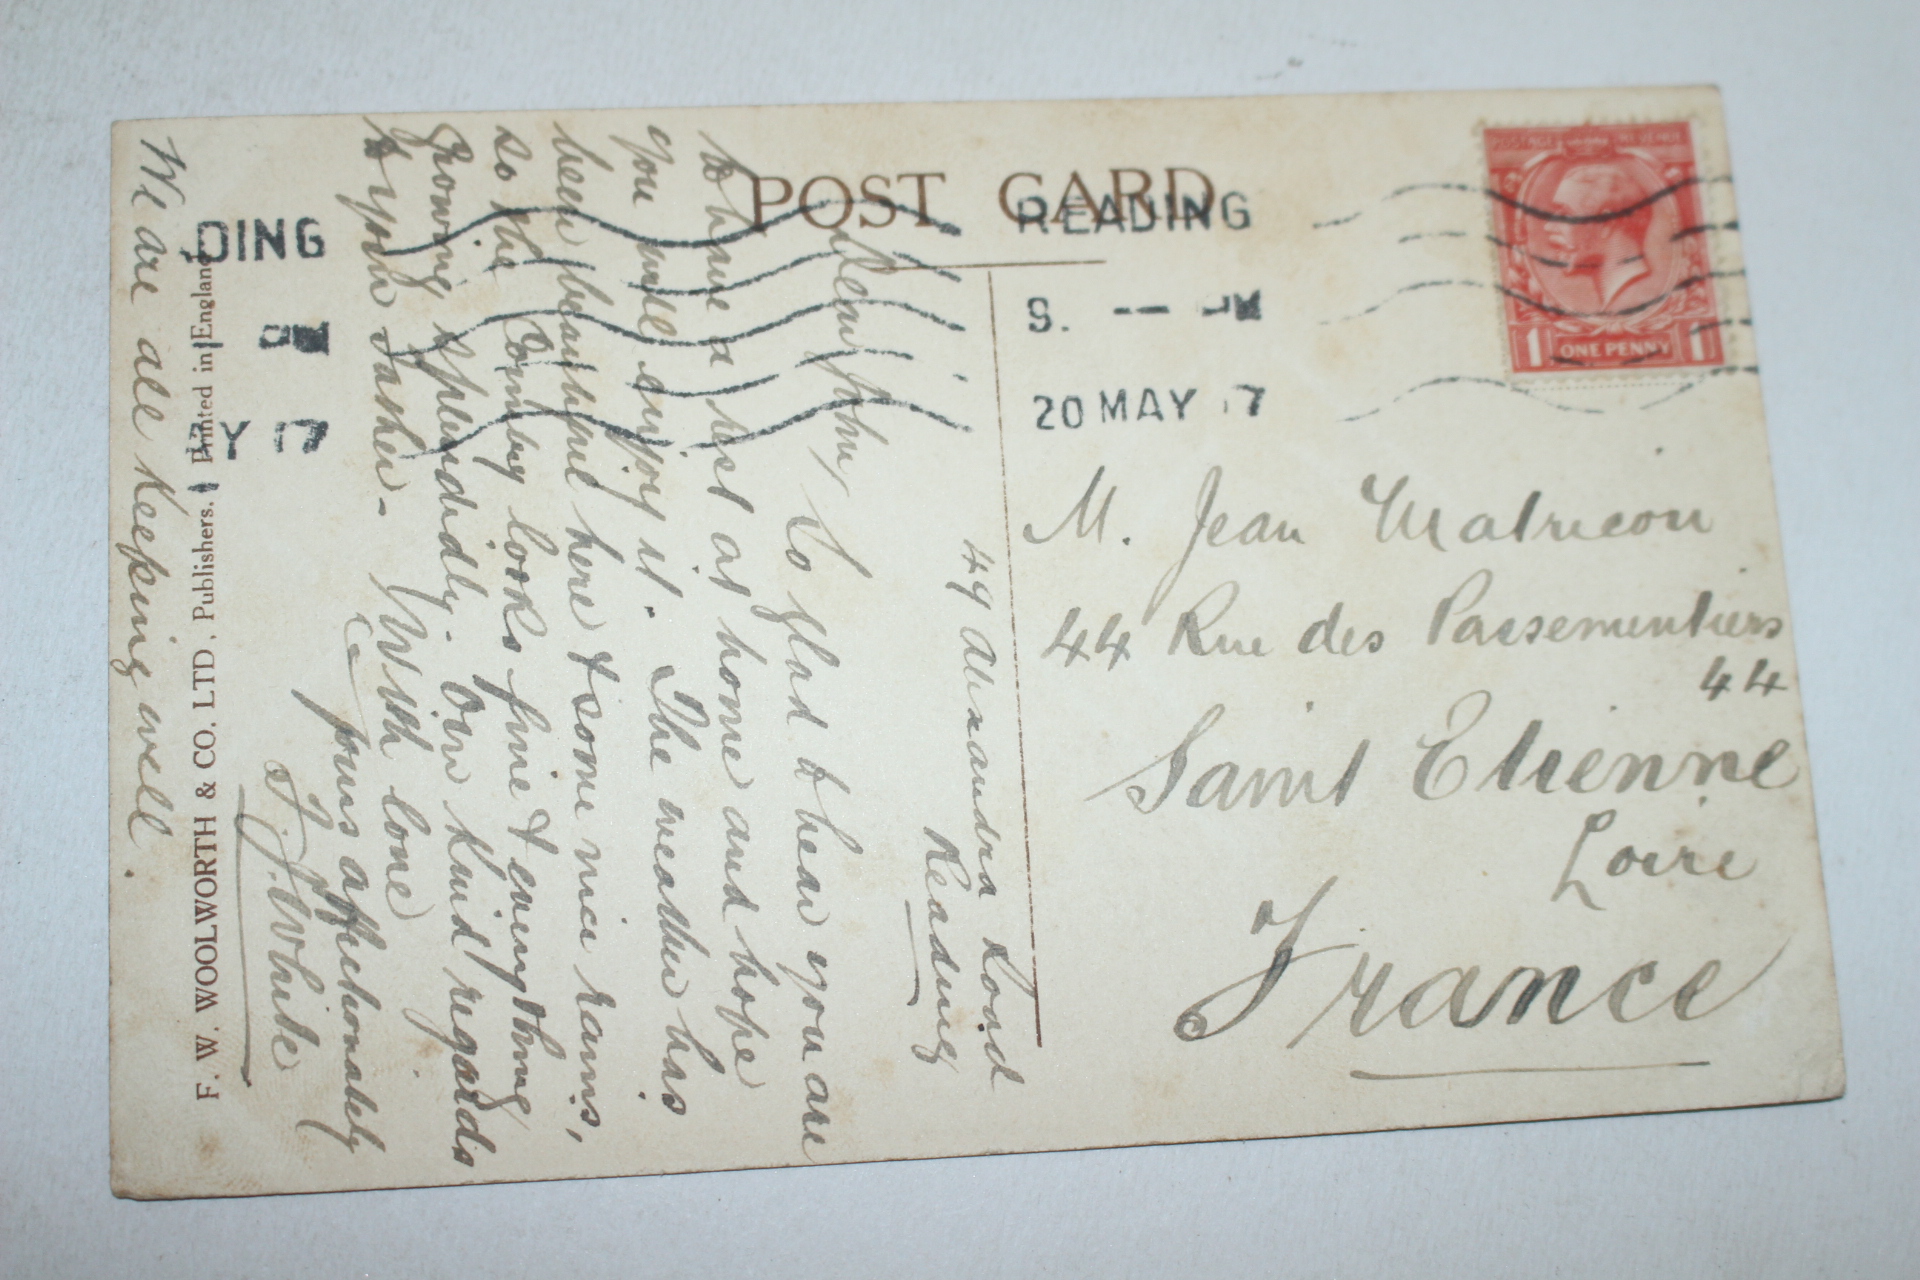 POST CARD
READING
9. -- PM
20 MAY 17
DING
PM
Y 17
POSTAGE REVENUE
1 ONE PENNY 1
M. Jean Matricon
44 Rue des Passementiers
44
Saint Etienne
Loire
France
49 Alexandra Road
Reading
Dear Johny
So glad to hear you are
to have a rest at home and hope
you will enjoy it. The weather has
been beautiful here & some nice rains,
so the Country looks fine & everything
growing splendidly. Our kind regards
to your Father - With love
yours affectionately
F. J. White
We are all keeping well.
F. W. WOOLWORTH & CO. LTD. Publishers. Printed in England